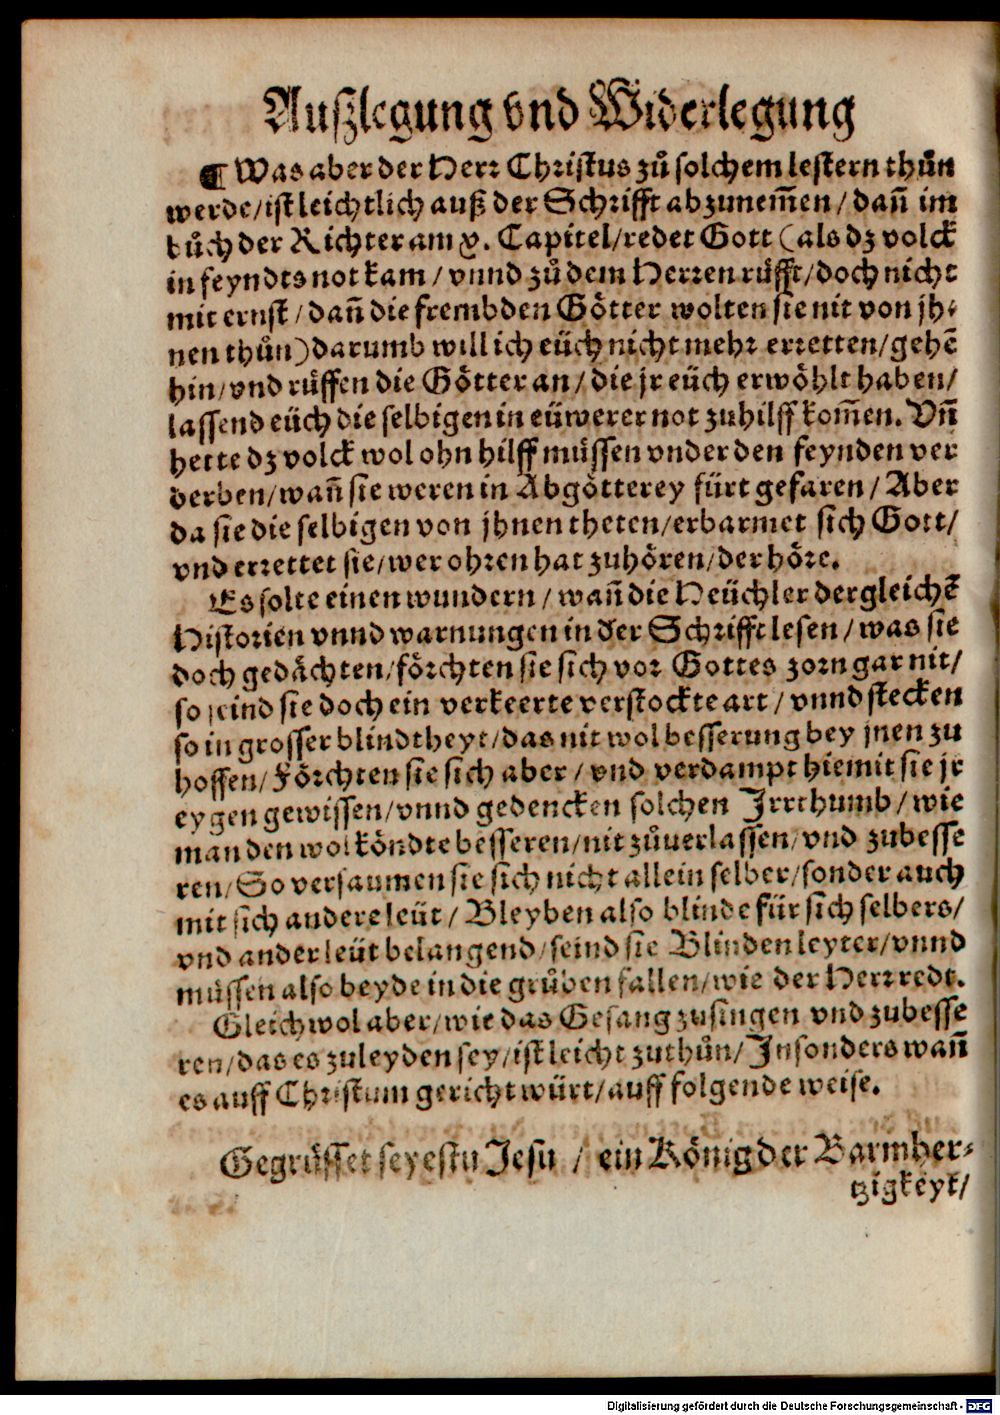 Außlegung vnd Widerlegung
¶ Was aber der Herr Christus zů solchem lestern thůn
werde/ist leichtlich auß der Schrifft abzunem̃en/dañ im
bůch der Richter am x. Capitel/redet Gott (als dz volck
in feyndts not kam/vnnd zů dem Herren růfft/doch nicht
mit ernst/dañ die frembden Götter wolten sie nit von jh⸗
nen thůn) darumb will ich eüch nicht mehr erretten/gehẽ
hin/vnd růffen die Götter an/die jr eüch erwöhlt haben/
lassend eüch die selbigen in eüwerer not zuhilff kom̃en. Vñ
hette dz volck wol ohn hilff müssen vnder den feynden ver
derben/wañ sie weren in Abgötterey fürt gefaren/Aber
da sie die selbigen von jhnen theten/erbarmet sich Gott/
vnd errettet sie/wer ohren hat zuhören/der höre.
Es solte einen wundern/wañ die Heüchler dergleichẽ
Historien vnnd warnungen in der Schrifft lesen/was sie
doch gedächten/förchten sie sich vor Gottes zorn gar nit/
so seind sie doch ein verkeerte verstockte art/vnnd stecken
so in grosser blindtheyt/das nit wol besserung bey jnen zu
hoffen/Förchten sie sich aber/vnd verdampt hiemit sie jr
eygen gewissen/vnnd gedencken solchen Irrthumb/wie
man den wol köndte besseren/nit zůuerlassen/vnd zubesse
ren/So versaumen sie sich nicht allein selber/sonder auch
mit sich andere leüt/Bleyben also blinde für sich selbers/
vnd ander leüt belangend/seind sie Blinden leyter/vnnd
müssen also beyde in die grůben fallen/wie der Herr redt.
Gleichwol aber/wie das Gesang zusingen vnd zubesse
ren/das es zuleyden sey/ist leicht zuthůn/Insonders wañ
es auff Christum gericht würt/auff folgende weise.
Gegrüsset seyestu Jesu / ein König der Barmher⸗
tzigkeyt/
Digitalisierung gefördert durch die Deutsche Forschungsgemeinschaft - DFG